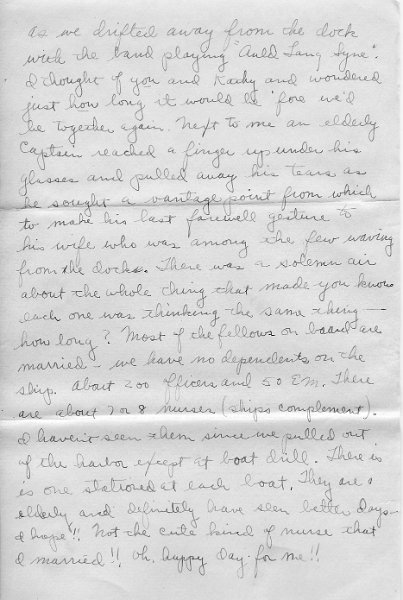 as we drifted away from the dock
with the band playing "Auld Lang Syne".
I thought of you and Kathy and wondered
just how long it would be 'fore we'd
be together again. Next to me an elderly
Captain reached a finger up under his
glasses and pulled away his tears as
he sought a vantage point from which
to make his last farewell gesture to
his wife who was among the few waving
from the docks. There was a solemn air
about the whole thing that made you know
each one was thinking the same thing —
how long? Most of the fellows on board are
married - we have no dependents on the
ship. About 200 officers and 50 EM. There
are about 7 or 8 nurses (ships complement).
I haven't seen them since we pulled out
of the harbor except at boat drill. There is
is one stationed at each boat. They are
elderly and definitely have seen better days -
I hope!! Not the cute kind of nurse that
I married!! Oh, happy day for me!!